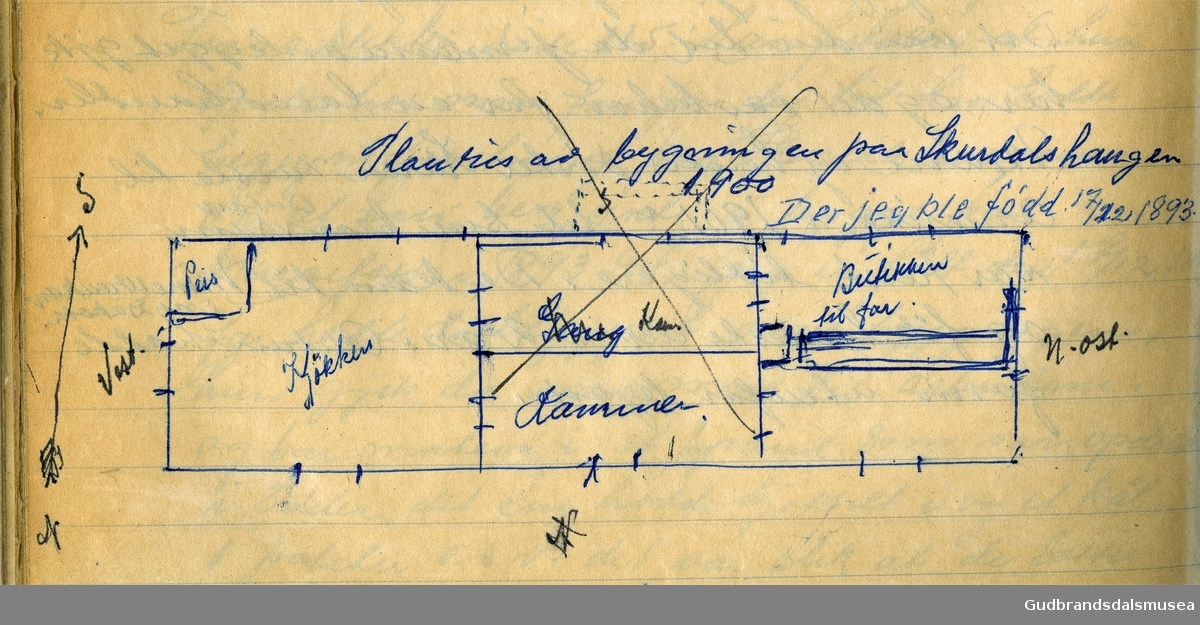 Plantris av bygningen paa Skurdalshaugen
1900
Der jeg ble född 17/12, 1893
S
Peis
Butikken
til far
Kam
Vest.
Kjökken
N-ost.
Kammer.
N
Gudbrandsdalsmusea